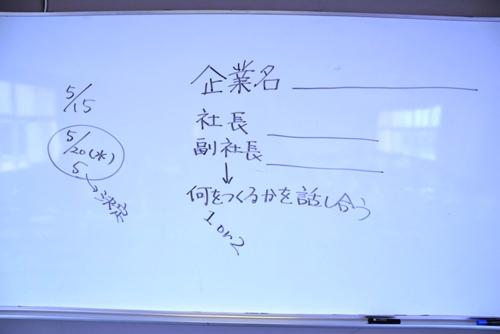 5/15
5/20(水)
5
決定
企業名
社長
副社長
↓
何をつくるかを話し合う
1 or 2